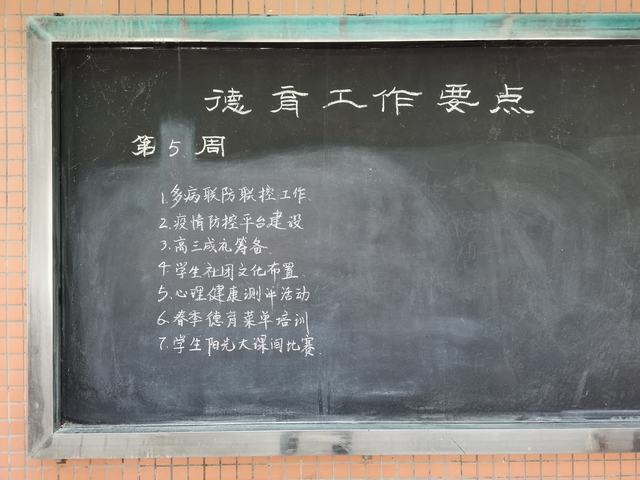 德育工作要点
第5周
1.多病联防联控工作.
2.疫情防控平台建设
3.高三成礼筹备
4学生社团文化布置.
5.心理健康测评活动
6.春季德育菜单培训
7.学生阳光大课间比赛.